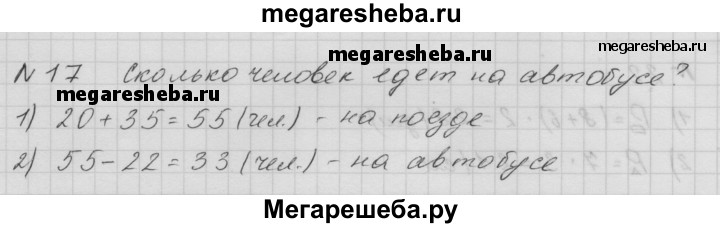 megaresheba.ru
megaresheba.ru
megaresheba.ru
N 17 Сколько человек едет на автобусе?
megaresheba.ru
1) 20 + 35 = 55 (чел.) - на поезде
2) 55 - 22 = 33 (чел.) - на автобусе
Мегарешеба.ру